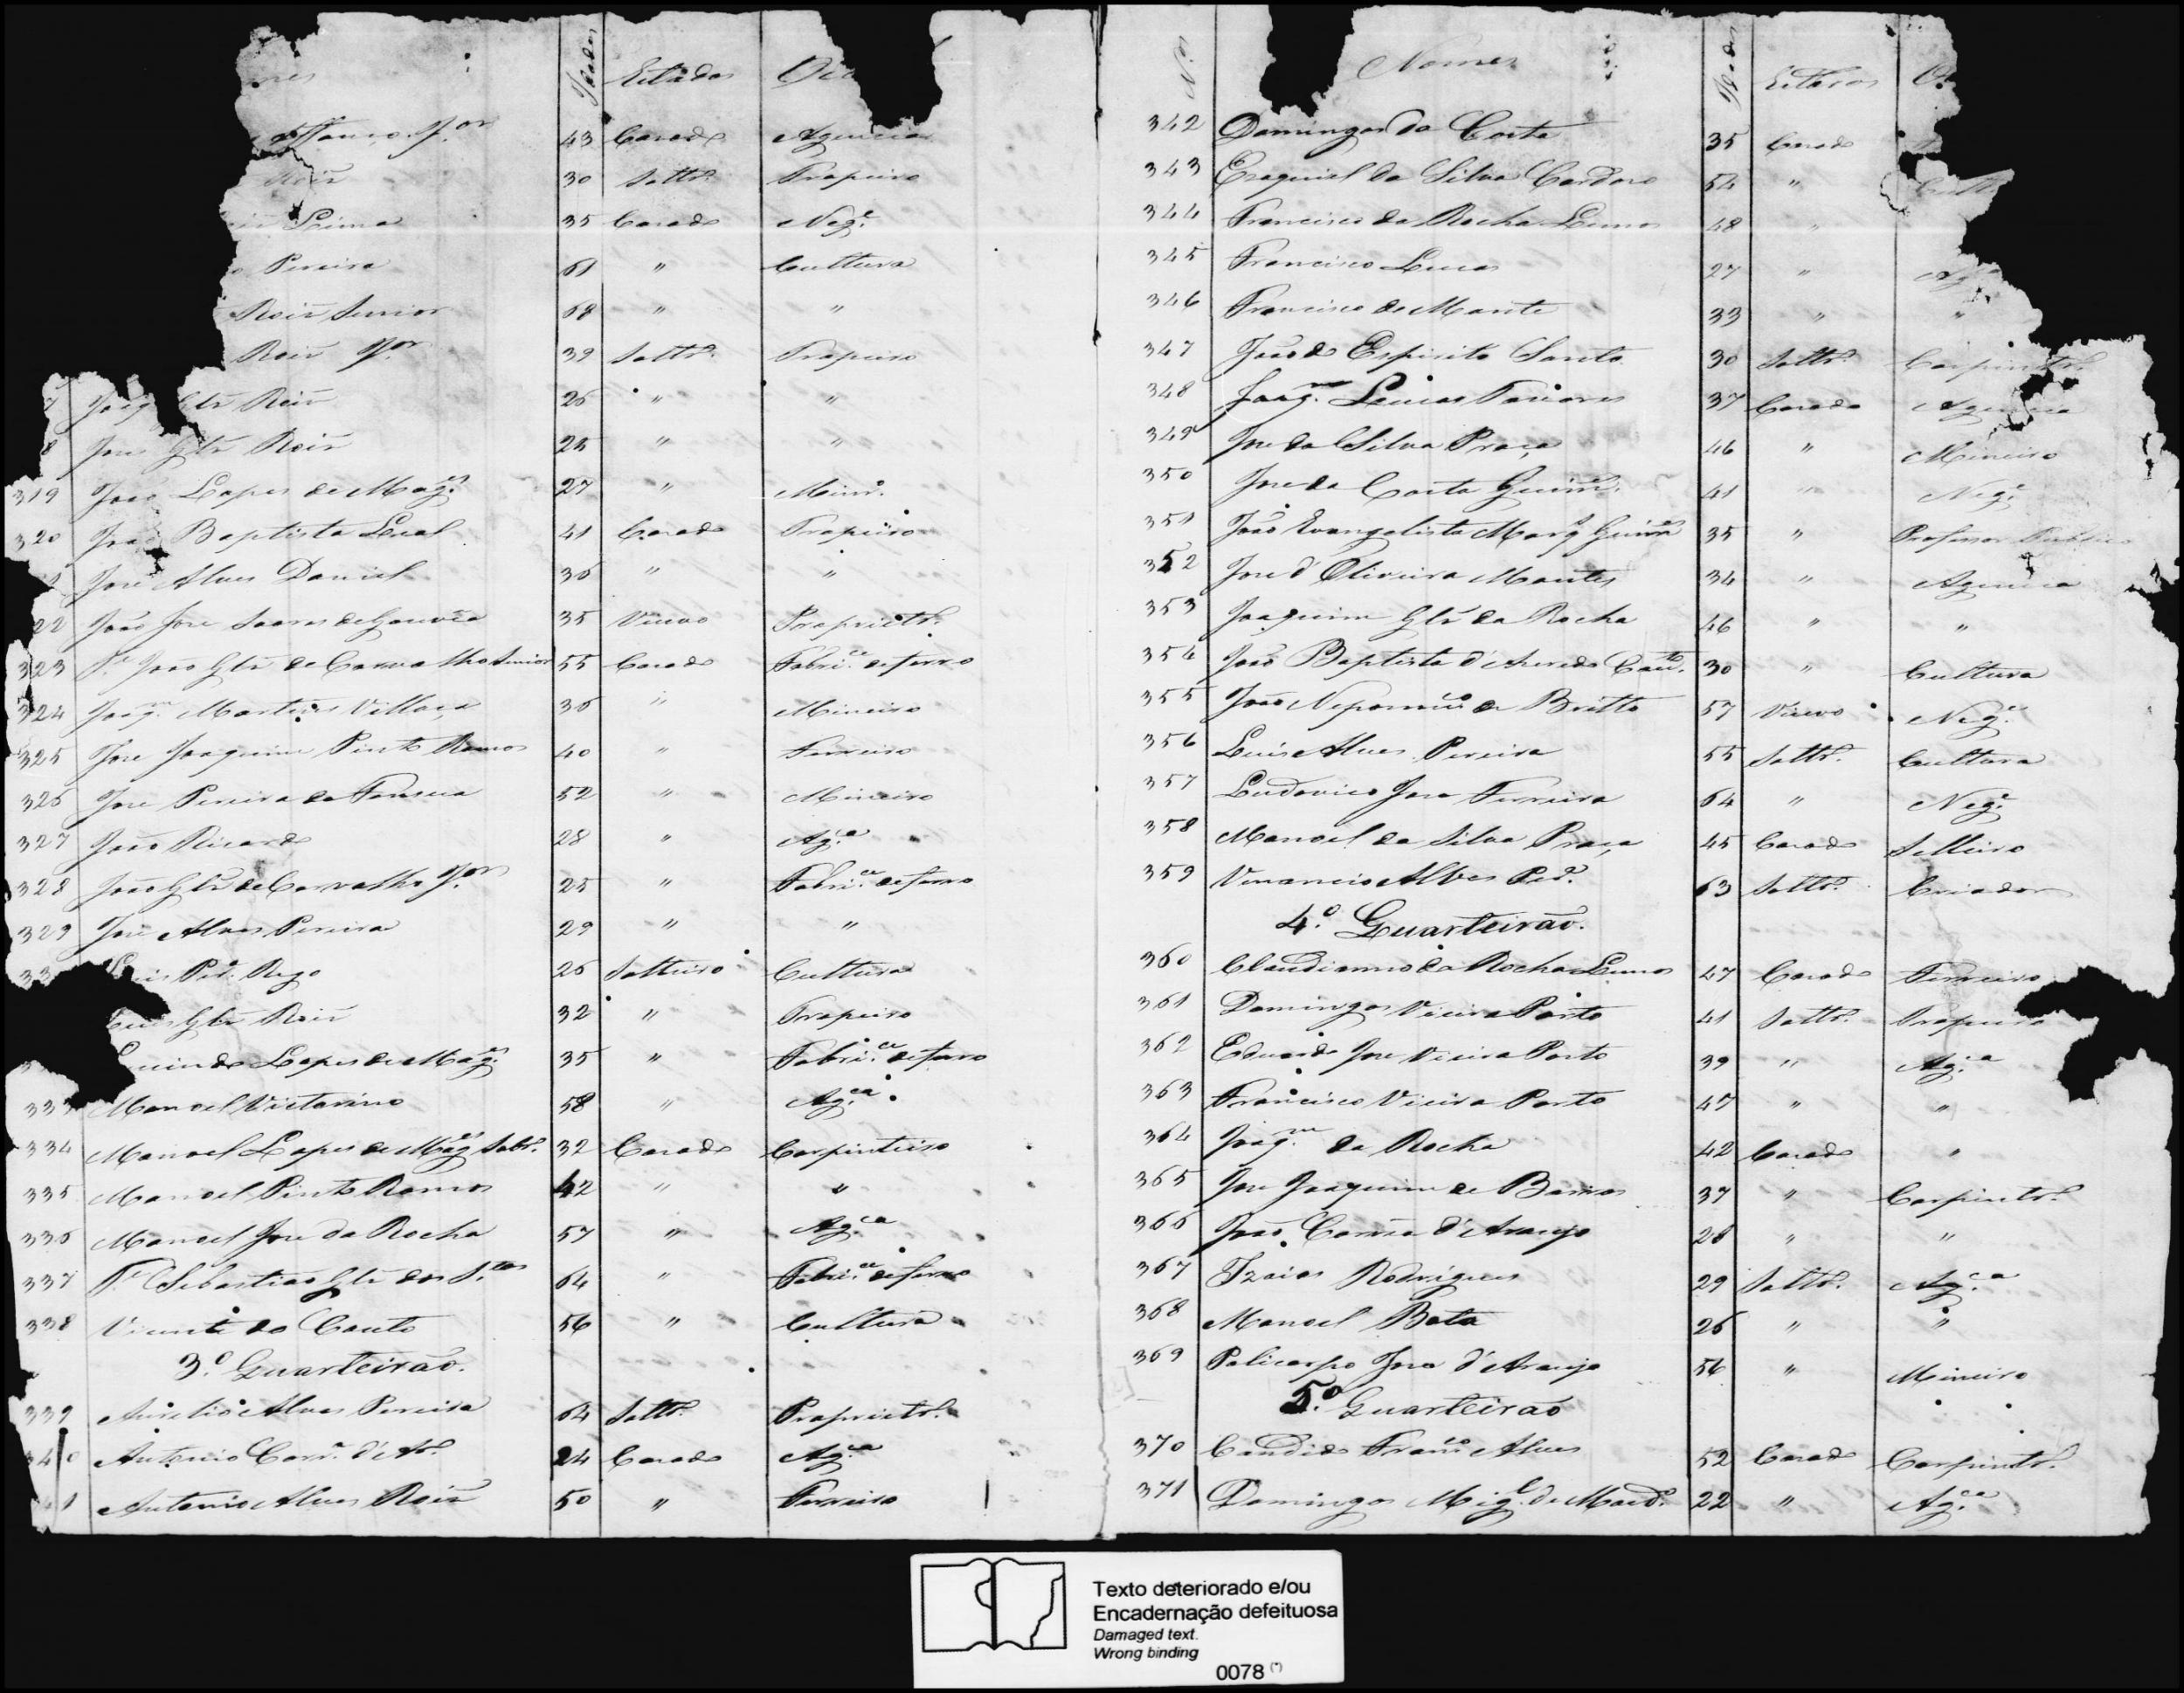 Idades Estados
Jor 43 Casado Agencia
Roiz 30 Soltro. Tropeiro
Lima 35 Casado Nege.
Pereira 61 " Cultura
Roiz Senior 68 " "
Roiz Jor 39 Soltro. Tropeiro
Glz Roiz 26 " "
Jose Glz Roiz 25 " "
319 João Lopes de Mages. 27 " Minro.
320 João Baptista Leal 41 Casado Tropeiro
Jose Alves Daniel 36 " "
22 João Jose Soares de Gouvêa 35 Viuvo Proprietro.
323 Te. João Glz de Carvalho Senior 55 Casado Fabrice. de ferro
324 Joaqm. Martins Villaça 36 " Mineiro
325 Jose Joaquim Pinto Ramos 40 " Ferreiro
326 Jose Pereira da Fonseca 52 " Mineiro
327 João Ricardo 28 " Aga.
328 João Glz de Carvalho Jor 25 " Fabrice. de ferro
329 Jose Alves Pereira 29 " "
Luis Pra. Rego 26 Solteiro Cultura
Glz Roiz 32 " Tropeiro
Lopes de Mages. 35 " Fabrice. de ferro
333 Manoel Victorino 58 " Agca.
334 Manoel Lopes de Mages. Sobro. 32 Casado Carpinteiro
335 Manoel Pinto Ramos 42 " "
336 Manoel Jose da Rocha 57 " Agca.
337 Te. Sebastião Glz dos Stos 64 " Fabrice. de ferro
338 Vicente do Couto 56 " Cultura
3º. Quarteirão.
339 Aurelio Alves Pereira 64 Soltro. Proprietro.
340 Antonio Corra. d'Aro. 24 Casado Agca.
41 Antonio Alves Roiz 50 " Ferreiro
Nos Nomes Idades Estados
342 Domingos da Costa 35 Casado
343 Ezequiel da Silva Cardoso 54 " Cult
344 Francisco da Rocha Lemos 48 "
345 Francisco Lucas 27 " Ag
346 Francisco de Monte 33 " "
347 João do Espirito Santo 30 Soltro. Carpintro.
348 Joaqm. Lucas Tavares 37 Casado Agencia
349 Jose da Silva Praça 46 " Mineiro
350 Jose da Costa Guimes. 41 " Nege.
351 João Evangelista Marqs Guimes 35 " Professor Publico
352 Jose d'Oliveira Montes 34 " Agencia
353 Joaquim Glz da Rocha 46 " "
354 João Baptista d'Azevedo Couto. 30 " Cultura
355 João Nepomuco de Britto 57 Viuvo Nege.
356 Luis Alves Pereira 55 Soltro. Cultura
357 Ludovico Jose Ferreira 64 " Nege.
358 Manoel da Silva Praça 45 Casado Selleiro
359 Venancio Alves Pra. 63 Soltro. Criador
4º. Quarteirão.
360 Claudianno da Rocha Lemos 47 Casado Ferreiro
361 Domingos Vieira Porto 41 Soltro. Tropeiro
362 Eduardo Jose Vieira Porto 39 " Aga.
363 Francisco Vieira Porto 47 " "
364 Joaqm. da Rocha 42 Casado "
365 Jose Joaquim de Barros 37 " Carpintro.
366 João Corrêa d'Araujo 28 " "
367 Izaias Rodrigues 29 Soltro. Agca.
368 Manoel Bota 26 " "
369 Policarpo Jose d'Araujo 56 " Mineiro
5º. Quarteirão
370 Candido Franco Alves 52 Casado Carpintro.
371 Domingos Migl. de Maedo. 22 " Agca.
Texto deteriorado e/ou
Encadernação defeituosa
Damaged text.
Wrong binding
0078 (*)